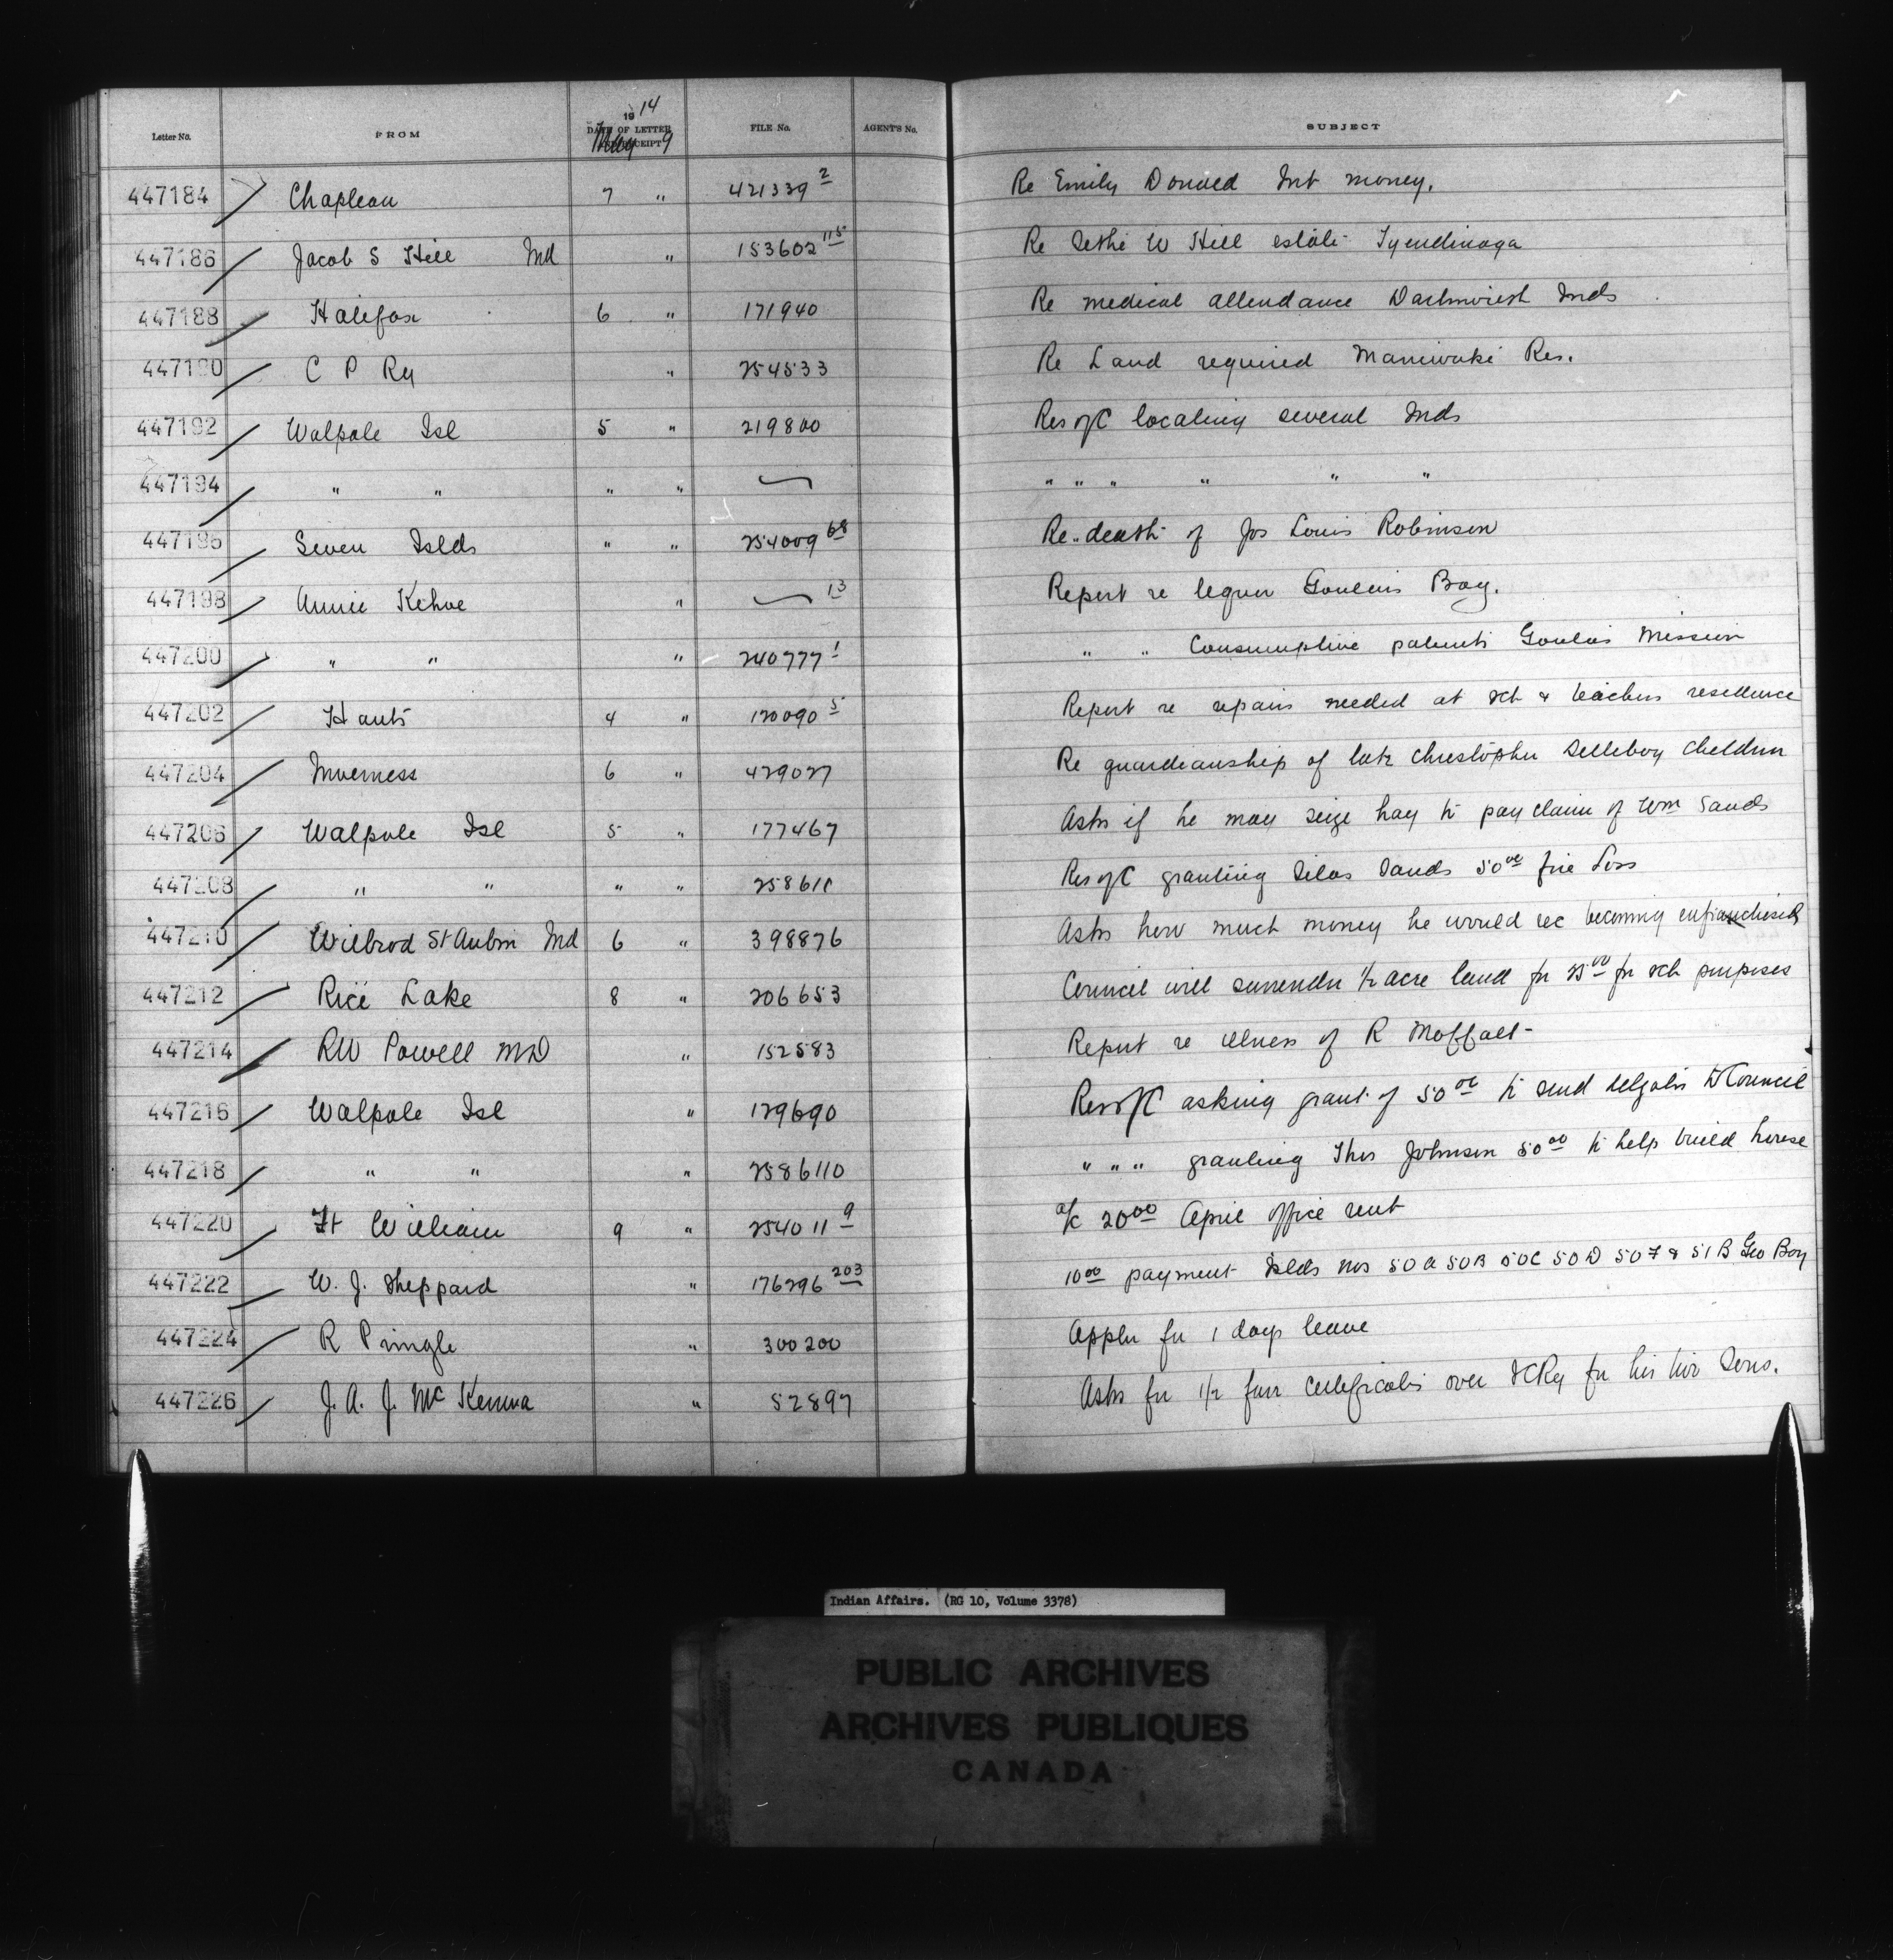 Letter No. FROM 1914 DATE OF LETTER RECEIPT May 9 FILE No. AGENT'S No. SUBJECT
447184 Chapleau 7 " 421339 2 Re Emily Donald Int money.
447186 Jacob S Hill Ind " 153602 115 Re Sethe W Hill estate Tyendinaga
447188 Halifax 6 " 171940 Re medical attendance Inds
447190 C P Ry " 254533 Re Land required Maniwaki Res.
447192 Walpole Isl 5 " 219800 Res of C locating several Inds
447194 " " " " " " " " " "
447196 Seven Islds " " 254009 68 Re death of Jos Louis Robinson
447198 Annie Kehoe " 13 Report re liquor Goulais Bay.
447200 " " " 240777 1 " " Consumptive patients Goulais Mission
447202 Hants 4 " 170090 5 Report re repairs needed at sch & teachers residence
447204 Inverness 6 " 429027 Re guardianship of late Christopher Silleboy children
447206 Walpole Isl 5 " 177467 Asks if he may seize hay to pay claim of Wm Sands
447208 " " " " 258611 Res of C granting Silas Sands 50 00 fire loss
447210 Wilbrod St Aubin Ind 6 " 398876 Asks how much money he would rec becoming enfranchised
447212 Rice Lake 8 " 206653 Council will surrender 1/2 acre land for 25 00 for sch purposes
447214 RW Powell MD " 152583 Report re illness of R Moffatt
447216 Walpole Isl " 129690 Res of C asking grant of 50 00 to send delegates to Council
447218 " " " 2586110 " " " granting Thos Johnson 50 00 to help build house
447220 Ft William 9 " 254011 9 a/c 20 00 April office rent
447222 W. J. Sheppard " 176296 203 10 00 payment Islds nos 50A 50B 50C 50D 50F & 51B Geo Bay
447224 R Pringle " 300200 Appln for 1 days leave
447226 J. A. J. McKenna " 52897 Asks for 1/2 fare certificates over Ry for his two sons.
Indian Affairs. (RG 10, Volume 3378)
PUBLIC ARCHIVES
ARCHIVES PUBLIQUES
CANADA